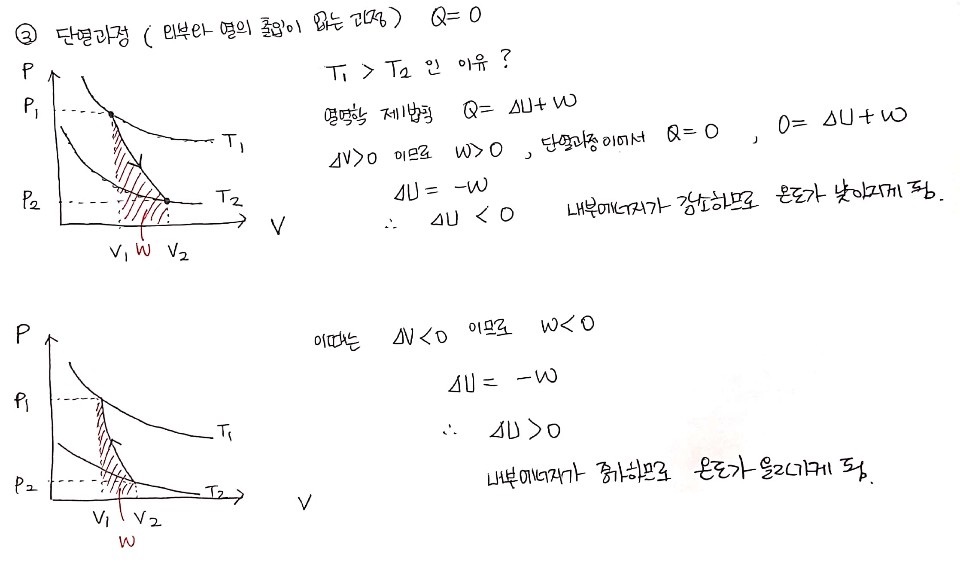 ③ 단열과정 ( 외부와 열의 출입이 없는 과정) Q=0
P
P₁
T₁
P₂
T₂
V
V₁ W V₂
T₁ > T₂ 인 이유?
열역학 제1법칙 Q= ΔU+W
ΔV>0 이므로 W>0 , 단열과정이어서 Q=0 , 0= ΔU+W
ΔU = -W
∴ ΔU < 0 내부에너지가 감소하므로 온도가 낮아지게 됨.
P
P₁
T₁
P₂
T₂
V
V₁ V₂
W
이때는 ΔV<0 이므로 W<0
ΔU = -W
∴ ΔU>0
내부에너지가 증가하므로 온도가 올라가게 됨.